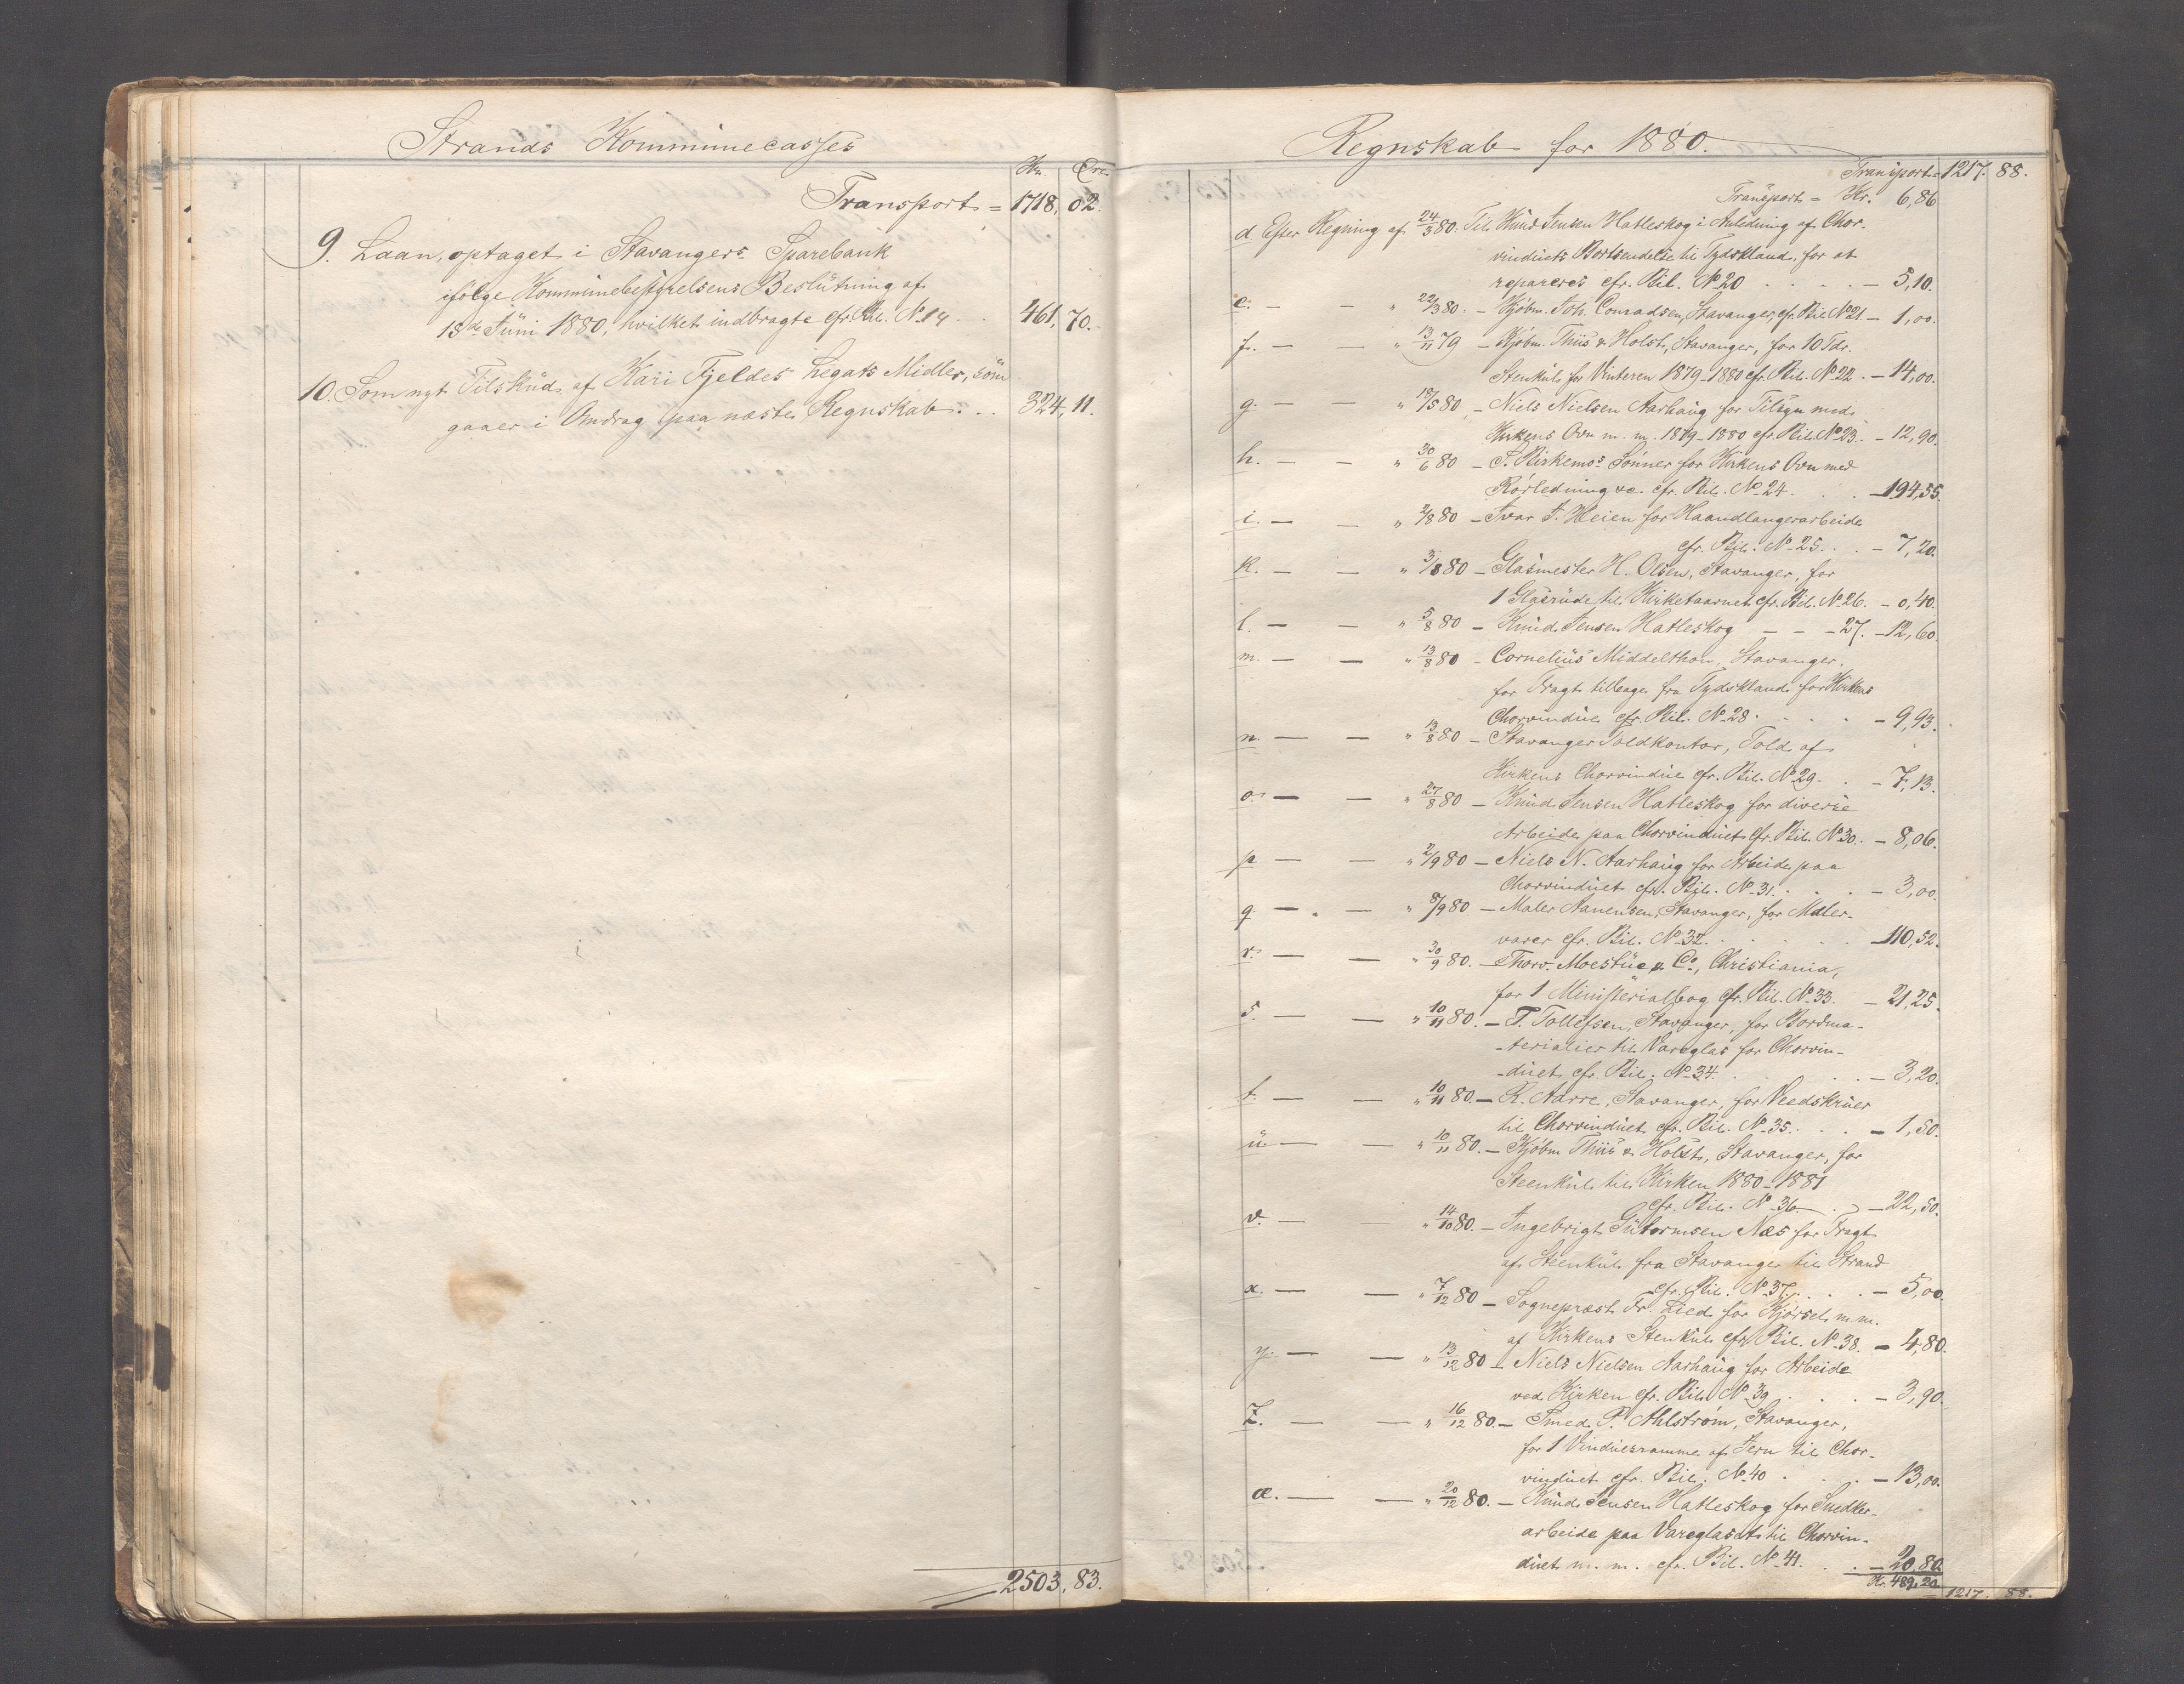 Strands Kommunecasses
Kr. Øre
Transport = 1718, 02.
9. Laan, optaget i Stavangers Sparebank
ifølge Kommunebestyrelsens Beslutning af
15de Juni 1880, hvilket indbragte cfr. Bil. No 14 . . 461, 70.
10. Som nyt Tilskud af Kari Fjeldes Legats Midler, som
gaaer i Omdrag paa næste Regnskab. . . 324, 11.
2503, 83.
Regnskab for 1880.
Transport = 1217. 88.
Transport = Kr. 6,86
d Efter Regning af 24/3 80. Til Knud Jensen Hatleskog i Anledning af Chor-
vinduets Bortsendelse til Tydskland, for at
repareres cfr. Bil. No 20 . . . . — 5,10.
e. — — " 22/3 80. — Kjøbm. Joh. Conradsen, Stavanger, cfr. Bil No 21 — 1,00.
f. — — " 13/11 79 — Kjøbm. Thiis & Holst, Stavanger, for 10 Tdr.
Stenkul for Vinteren 1879-1880 cfr. Bil. No 22 . — 14,00.
g. — — " 18/5 80 — Niels Nielsen Aarhaug for Tilsyn med
Kirkens Ovn m. m. 1879-1880 cfr. Bil. No 23. — 12,90.
h. — — " 30/6 80 — S. Kirkemos Sønner for Kirkens Ovn med
Rørledning &c. cfr. Bil. No 24. . . — 194,55.
i. — — " 2/8 80 — Ivar T. Heien for Haandlangerarbeide
cfr. Bil. No 25. . . — 7,20.
k. — — " 3/8 80 — Glasmester H. Olsen, Stavanger, for
1 Glasrude til Kirketaarnet cfr. Bil. No 26. — 0,40.
l. — — " 5/8 80 — Knud Jensen Hatleskog — — — 27. — 12,60
m. — — " 13/8 80 — Cornelius Middelthon, Stavanger,
for Fragt tilbage fra Tydskland for Kirkens
Chorvindue cfr. Bil. No 28. . . . — 9,93.
n. — — " 13/8 80 — Stavanger Toldkontor, Told af
Kirkens Chorvindue cfr. Bil. No 29. . — 7,13.
o. — — " 27/8 80 — Knud Jensen Hatleskog for diverse
Arbeide paa Chorvinduet cfr. Bil. No 30. — 8,06.
p — — " 2/9 80 — Niels N. Aarhaug for Arbeide paa
Chorvinduet cfr. Bil. No 31. . . . — 3,00.
q. — — " 8/9 80 — Maler Aanensen, Stavanger, for Maler-
varer cfr. Bil. No 32. . . . . — 110,52.
r. — — " 30/9 80. — Thorv. Moestue & Co, Christiania,
for 1 Ministerialbog cfr. Bil. No 33. — 21,25.
s. — — " 10/11 80. — T. Tollefsen, Stavanger, for Bordma-
-terialier til Vareglas for Chorvin-
-duet cfr. Bil. No 34. . . . — 3,20.
t. — — " 10/11 80. — R. Aarre, Stavanger, for Veedskruer
til Chorvinduet cfr. Bil. No 35. . . . — 1,50.
u. — — " 10/11 80. — Kjøbm Thiis & Holst, Stavanger, for
Steenkul til Kirken 1880-1881
cfr. Bil. No 36 — . — 22,50.
v. — — " 14/10 80. — Ingebrigt Gutormsen Næs for Fragt
af Steenkul fra Stavanger til Strand
cfr. Bil. No 37. . . . — 5,00.
x. — — " 7/12 80 — Sognepræst Dr. Lied for Kjørsel m. m.
af Kirkens Stenkul cfr. Bil. No 38. — 4,80.
y. — — " 13/12 80 — Niels Nielsen Aarhaug for Arbeide
ved Kirken cfr. Bil. No 39 . . . — 3,90.
z. — — " 16/12 80. — Smed P. Ahlstrøm, Stavanger,
for 1 Vinduesramme af Jern til Chor-
vinduet cfr. Bil. No 40 . . . — 13,00.
æ. — — " 20/12 80. — Knud Jensen Hatleskog for Snedker-
arbeide paa Vareglaset til Chorvin-
duet m. m. cfr. Bil. No 41. . . — 20,80.
Kr. 489,20 1217. 88.